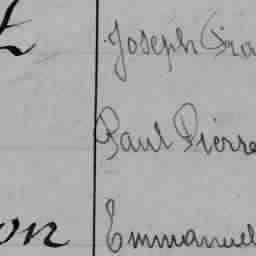 Joseph
Paul Pierre
on Emmanuel